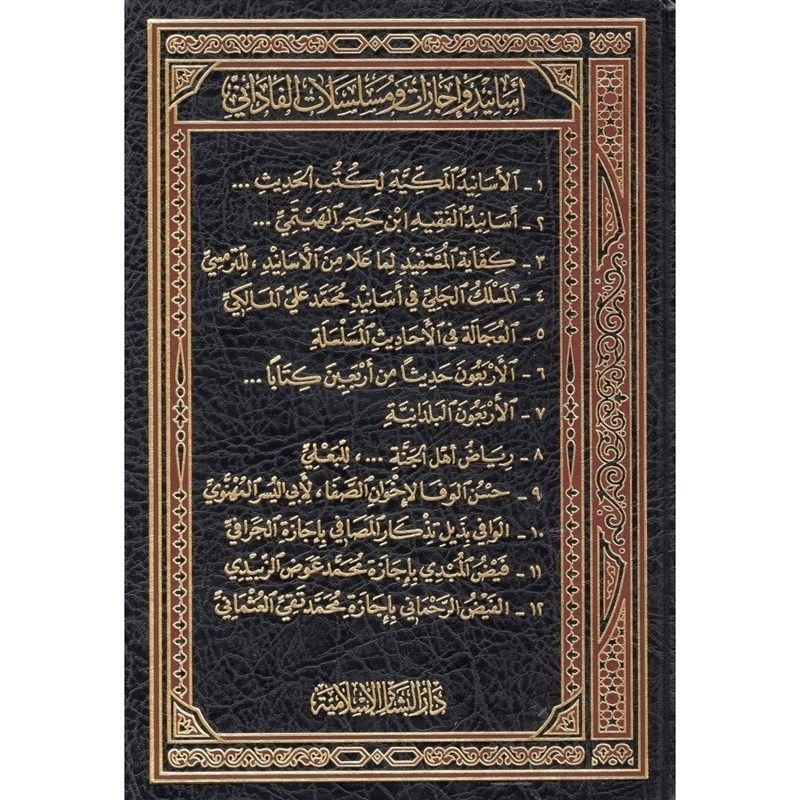 أسانيد وإجازات ومسلسلات الفاداني
١ - الأَسَانِيدُ المَكِّيَّة لِكُتُبِ الحَدِيثِ ...
٢ - أَسَانِيدُ الفَقِيهِ ابْنِ حَجَرٍ الهَيْتَمِيِّ ...
٣ - كِفَايَة المُسْتَفِيدِ لِمَا عَلَا مِنَ الأَسَانِيْدِ ، لِلتّرمسِيّ
٤ - المَسْلَكُ الجَلِيُّ فِي أَسَانِيْدِ مُحَمَّد عَلِيّ المَالِكِيّ
٥ - العُجَالَة فِي الأَحَادِيثِ المُسَلْسَلَةِ
٦ - الأَرْبَعُونَ حَدِيثًا مِن أَرْبَعِينَ كِتَابًا ...
٧ - الأَرْبَعُونَ البُلدَانِيَّة
٨ - رِيَاضُ أَهْلِ الجَنَّةِ ... ، لِلبَعْلِيِّ
٩ - حُسْنُ الوَفَا لِإِخْوَانِ الصَّفَا ، لِأَبِي اليُسر
١٠ - الوَافِي بِذَيْلِ تِذْكَارِ المَصَافِي بِإِجَازَةِ الجَرَافِيّ
١١ - فَيْضُ المُبْدِي بِإِجَازَة مُحَمَّد عَوَض الزَّبِيدِيّ
١٢ - الفَيْضُ الرَّحْمَانِي بِإِجَازَة مُحَمَّد تَقِيّ العُثْمَانِيّ
دار البشائر الإسلامية